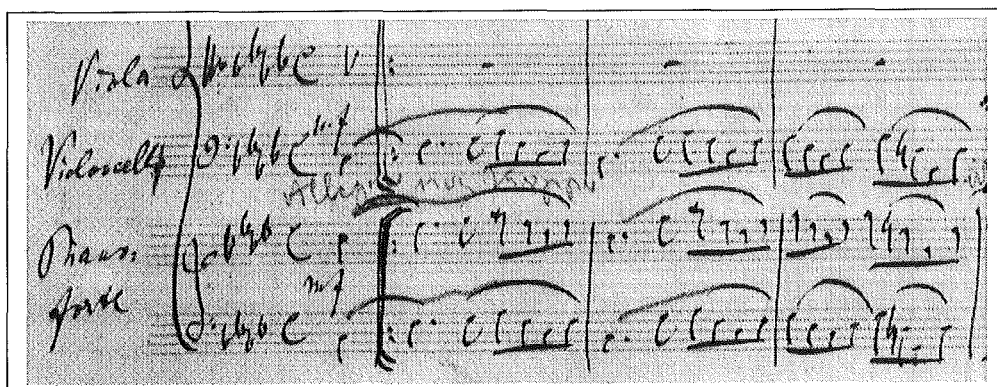 Viola
Violoncello
mf
Allegro non troppo
Piano-
forte
mf